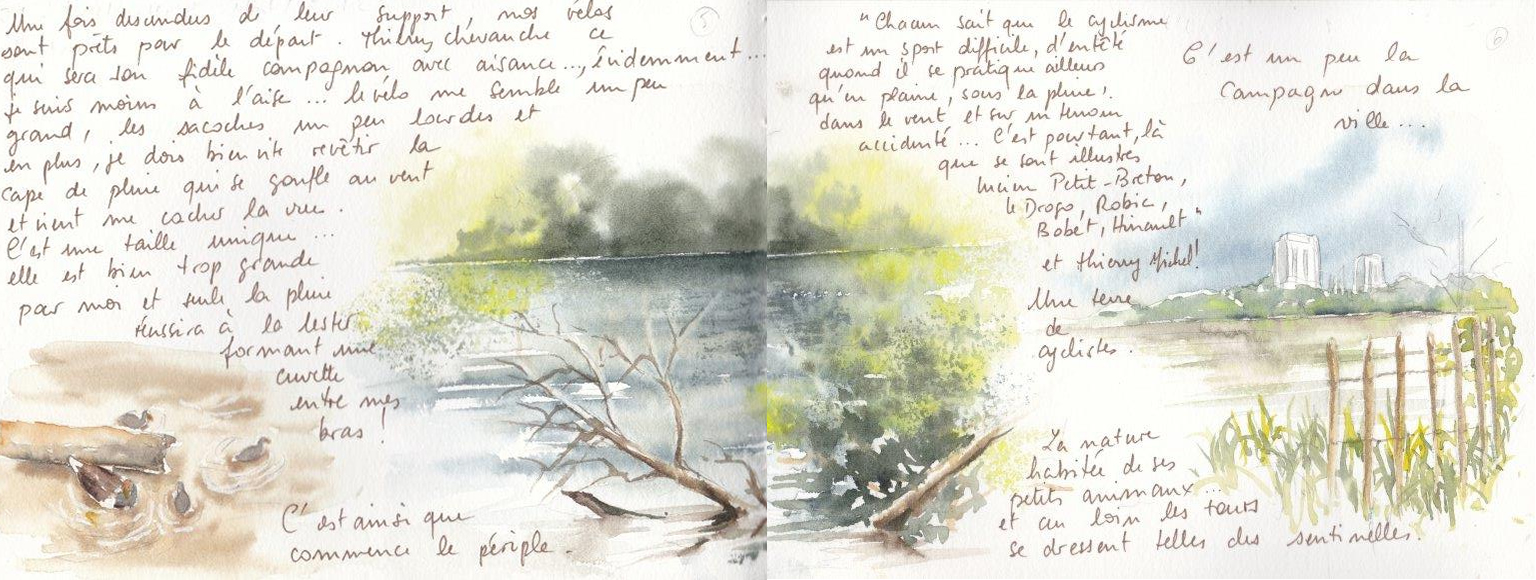 5
Une fois descendus de leur support, nos vélos
sont prêts pour le départ. Thierry chevauche ce
qui sera son fidèle compagnon avec aisance..., évidemment...
je suis moins à l'aise... le vélo me semble un peu
grand, les sacoches un peu lourdes et
en plus, je dois bien vite revêtir la
cape de pluie qui se gonfle au vent
et vient me cacher la vue.
C'est une taille unique...
elle est bien trop grande
pour moi et seule la pluie
réussira à la lester
formant une
cuvette
entre mes
bras !
C'est ainsi que
commence le périple.
6
"Chacun sait que le cyclisme
est un sport difficile, d'entêté
quand il se pratique ailleurs
qu'en plaine, sous la pluie,
dans le vent et sur un terrain
accidenté... C'est pourtant, là
que se sont illustrés
Lucien Petit-Breton,
le Drogo, Robic,
Bobet, Hinault"
et Thierry Michel!
Une terre
de
cyclistes.
C'est un peu la
campagne dans la
ville....
La nature
habitée de ses
petits animaux...
et au loin les tours
se dressent telles des sentinelles.